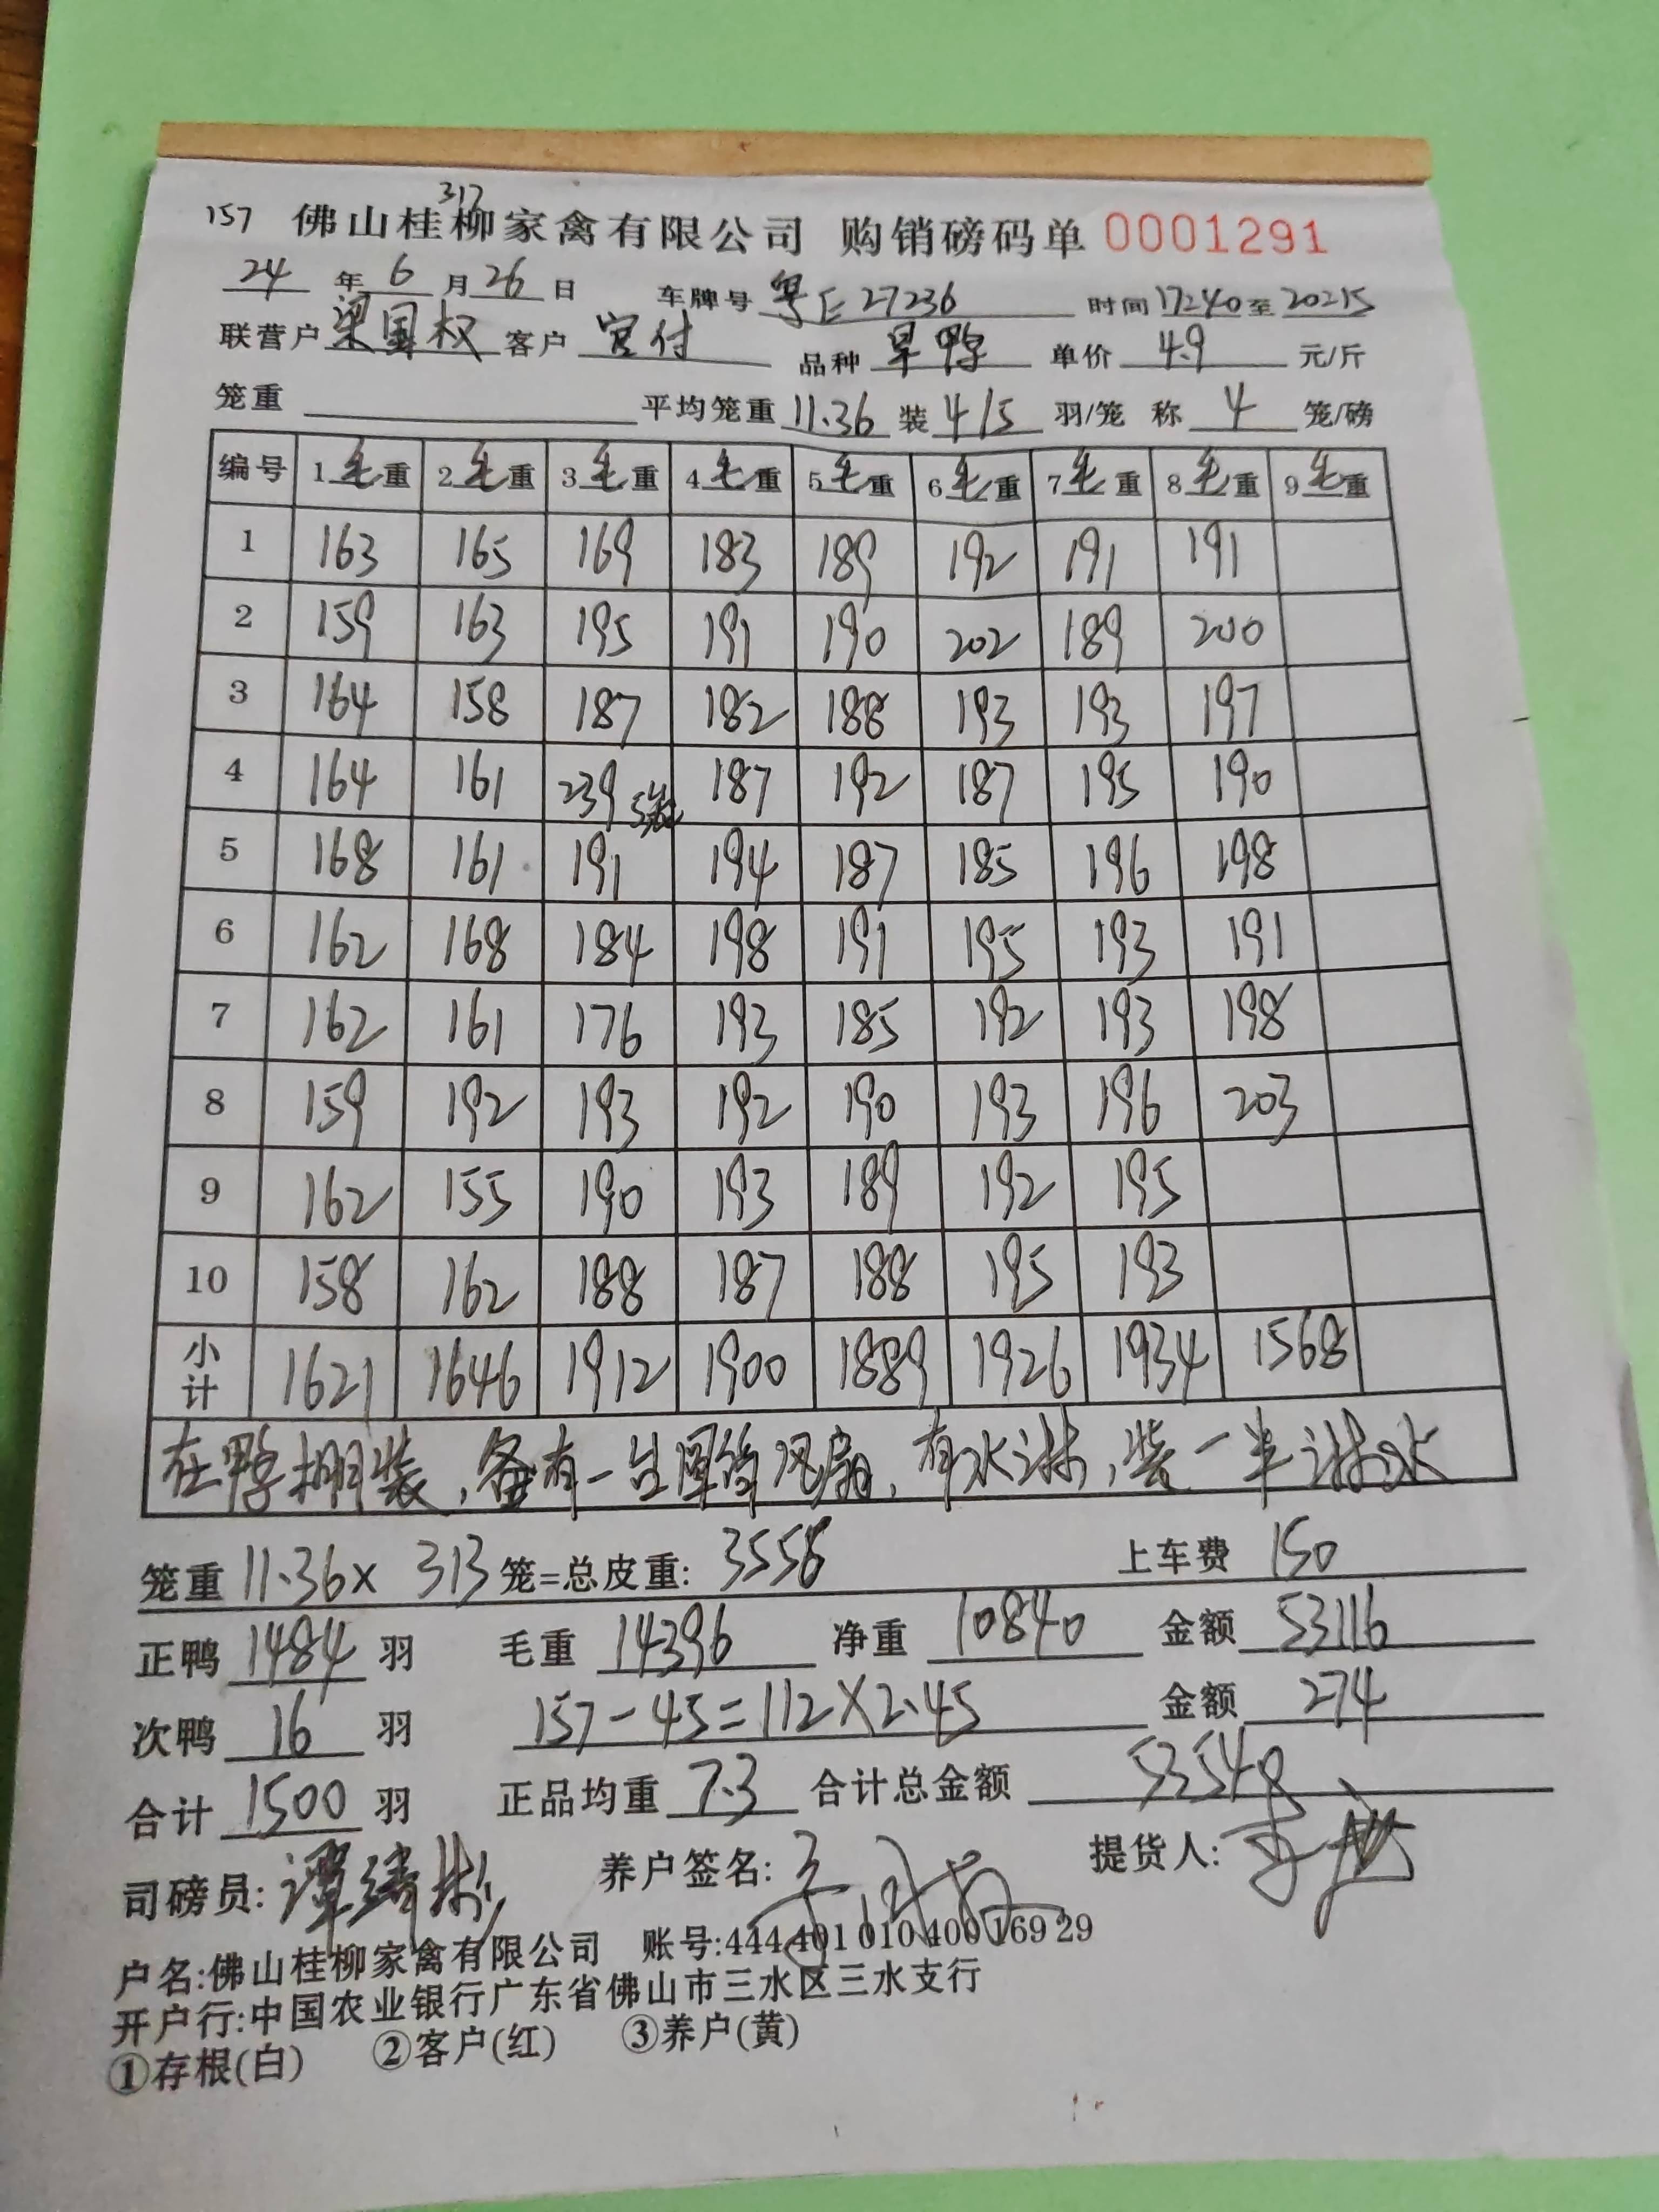 317
157 佛山桂柳家禽有限公司 购销磅码单 0001291
24 年 6 月 26 日 车牌号 粤E27236 时间 17:40 至 20:15
联营户 梁国权 客户 宫付 品种 旱鸭 单价 4.9 元/斤
笼重 平均笼重 11.36 装 4/5 羽/笼 称 4 笼/磅
编号 1毛重 2毛重 3毛重 4毛重 5毛重 6毛重 7毛重 8毛重 9毛重
1 163 165 169 183 189 192 191 191
2 159 163 195 191 190 202 189 200
3 164 158 187 182 188 193 193 197
4 164 161 239 5笼 187 192 187 195 190
5 168 161 191 194 187 185 196 198
6 162 168 184 198 191 195 193 191
7 162 161 176 193 185 192 193 198
8 159 192 193 192 190 193 196 203
9 162 155 190 193 189 192 195
10 158 162 188 187 188 195 193
小计 1621 1646 1912 1900 1889 1926 1934 1568
在鸭棚装,备有一台风扇,有水淋,装一半淋水
笼重 11.36 x 313 笼=总皮重: 3556 上车费 150
正鸭 1484 羽 毛重 14396 净重 10840 金额 53116
次鸭 16 羽 157-45=112X2.45 金额 274
合计 1500 羽 正品均重 7.3 合计总金额 53540
司磅员: 养户签名: 提货人:
户名:佛山桂柳家禽有限公司 账号:444 401 010 400 169 29
开户行:中国农业银行广东省佛山市三水区三水支行
①存根(白) ②客户(红) ③养户(黄)